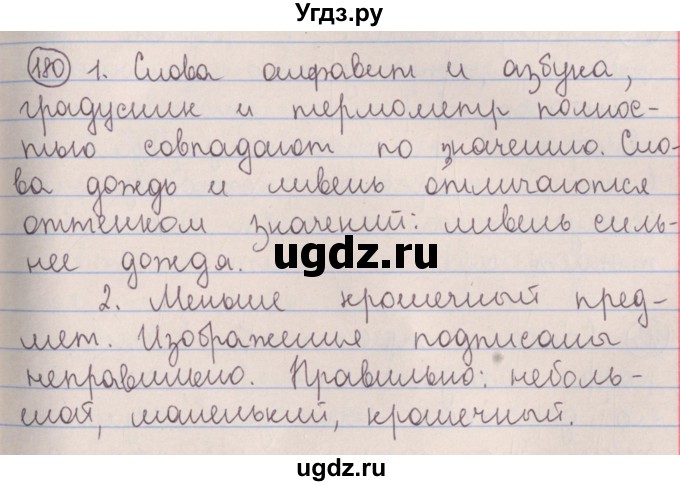 Угдз.ру
180 1. Слова алфавит и азбука,
градусник и термометр полнос-
тью совпадают по значению. Сло-
ва дождь и ливень отличаются
оттенком значений: ливень силь-
нее дождя.
ugdz.ru
2. Меньше крошечный пред-
мет. Изображения подписаны
неправильно. Правильно: неболь-
шой, маленький, крошечный.
ugdz.ru